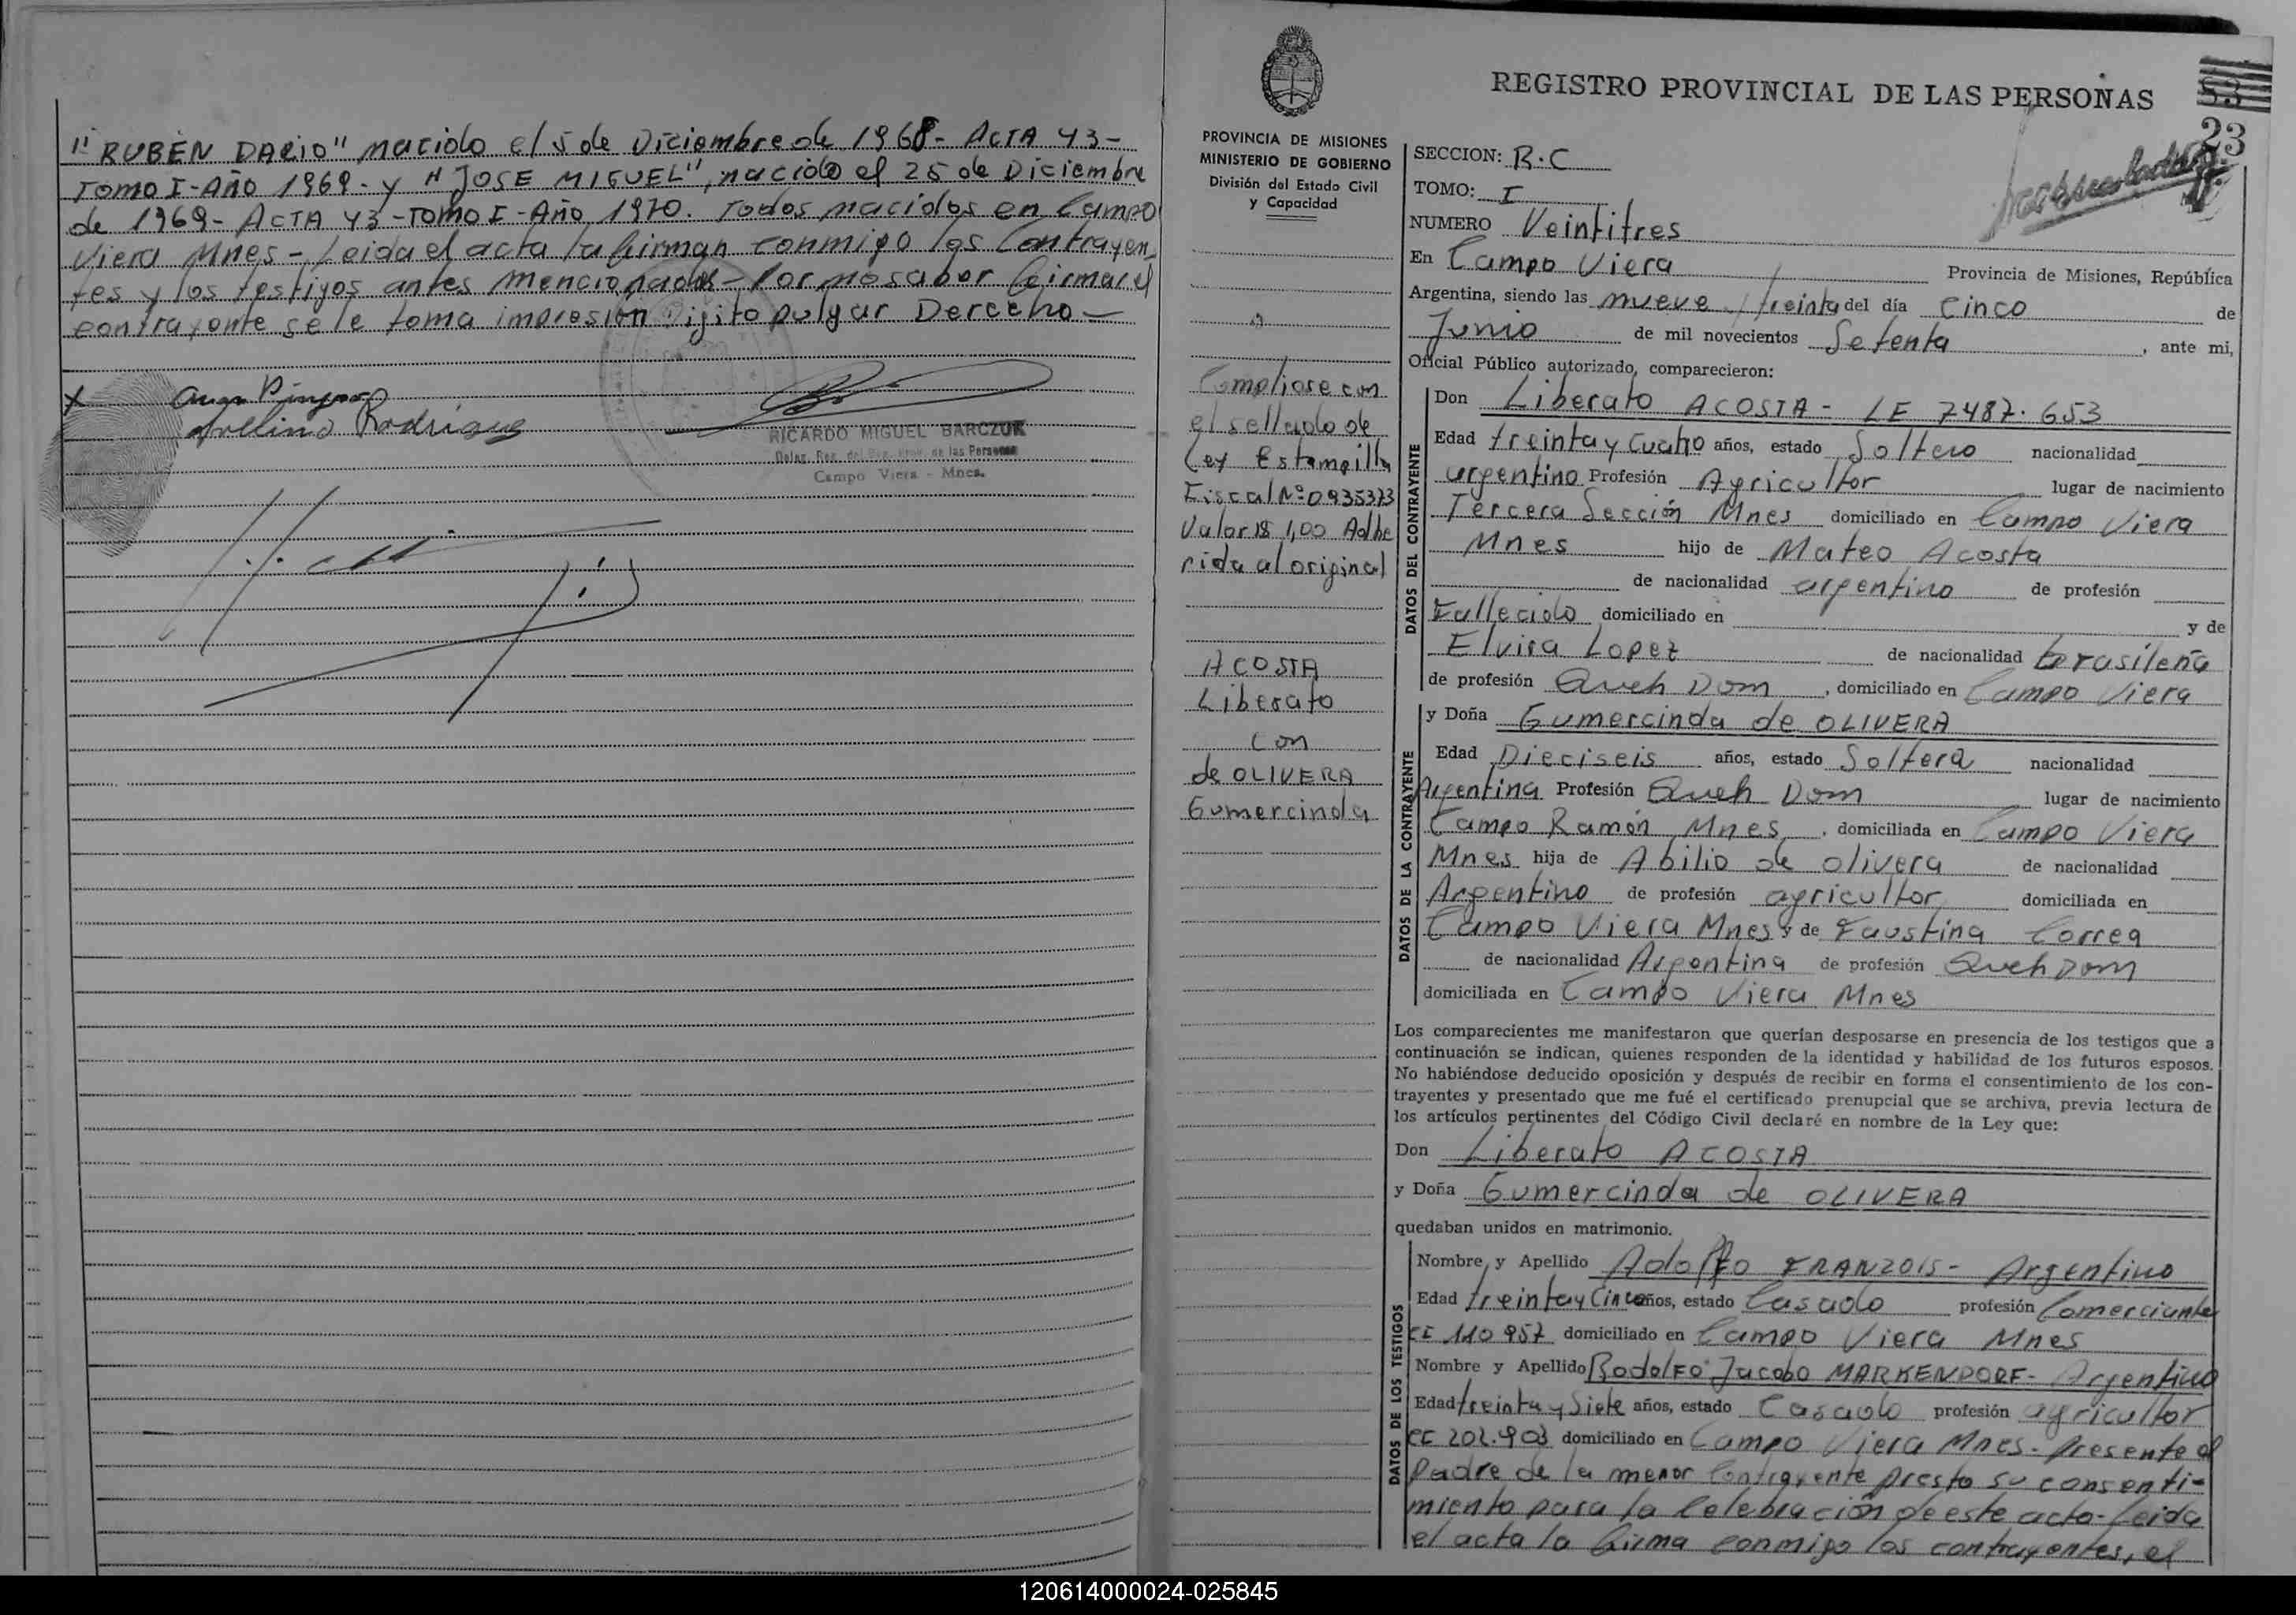 "RUBEN DARIO" nacido el 5 de Diciembre de 1968- ACTA 43-
TOMO I-AÑO 1969- y "JOSE MIGUEL", nacido el 25 de Diciembre
de 1969- ACTA 43-TOMO I-Año 1970. Todos nacidos en Campo
Viera Mnes- Leida el acta la firman conmigo los Contrayen-
tes y los testigos antes mencionados- Por no saber firmar el
contrayente se le toma impresion Digito pulgar Derecho-
X
Avelino Rodrigues
RICARDO MIGUEL BARCZUK
Campo Viera - Mnes.
REGISTRO PROVINCIAL DE LAS PERSONAS
53
23
PROVINCIA DE MISIONES
MINISTERIO DE GOBIERNO
División del Estado Civil
y Capacidad
Cumpliose con
el sellado de
Ley Estampilla
Fiscal Nº 0935373
Valor $ 1,00 Adhe
rida al original
ACOSTA
Liberato
con
de OLIVERA
Gumercinda
SECCION: R.C
TOMO: I
NUMERO Veintitres
En Campo Viera Provincia de Misiones, República
Argentina, siendo las nueve y treinta del día Cinco de
Junio de mil novecientos Setenta, ante mi,
Oficial Público autorizado, comparecieron:
DATOS DEL CONTRAYENTE
Don Liberato ACOSTA- LE 7487.653
Edad treinta y cuatro años, estado Soltero nacionalidad
argentino Profesión Agricultor lugar de nacimiento
Tercera Sección Mnes domiciliado en Campo Viera
Mnes hijo de Mateo Acosta
de nacionalidad argentino de profesión
Fallecido domiciliado en y de
Elvira Lopez de nacionalidad brasileña
de profesión Queh Dom, domiciliado en Campo Viera
DATOS DE LA CONTRAYENTE
y Doña Gumercinda de OLIVERA
Edad Dieciseis años, estado Soltera nacionalidad
Argentina Profesión Queh Dom lugar de nacimiento
Campo Ramón Mnes, domiciliada en Campo Viera
Mnes hija de Abilio de olivera de nacionalidad
Argentino de profesión agricultor domiciliada en
Campo Viera Mnes y de Faustina Correa
de nacionalidad Argentina de profesión Queh Dom
domiciliada en Campo Viera Mnes
Los comparecientes me manifestaron que querían desposarse en presencia de los testigos que a
continuación se indican, quienes responden de la identidad y habilidad de los futuros esposos.
No habiéndose deducido oposición y después de recibir en forma el consentimiento de los con-
trayentes y presentado que me fué el certificado prenupcial que se archiva, previa lectura de
los artículos pertinentes del Código Civil declaré en nombre de la Ley que:
Don Liberato ACOSTA
y Doña Gumercinda de OLIVERA
quedaban unidos en matrimonio.
DATOS DE LOS TESTIGOS
Nombre y Apellido Adolfo FRANZOIS- Argentino
Edad treinta y Cinco años, estado Casado profesión Comerciante
CI 110957 domiciliado en Campo Viera Mnes
Nombre y Apellido Rodolfo Jacobo MARKENDORF- Argentino
Edad treinta y Siete años, estado Casado profesión agricultor
CI 202.903 domiciliado en Campo Viera Mnes- Presente el
Padre de la menor Contrayente presto su consenti-
miento para la Celebración de este acto- Leida
el acta la firma conmigo los contrayentes, el
120614000024-025845